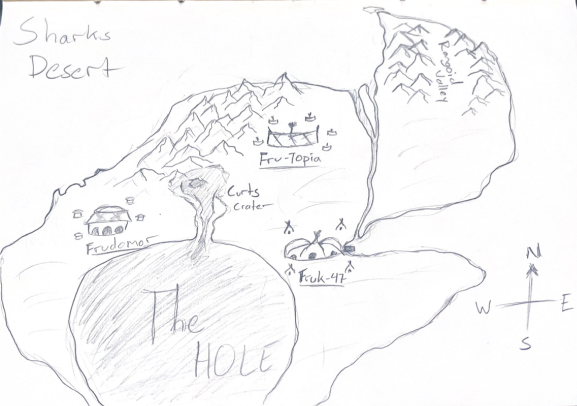 Sharks
Desert
Rogoid
Valley
Fru-Topia
Curts
Crater
Frudomar
Fruk-47
The
HOLE
N
W E
S